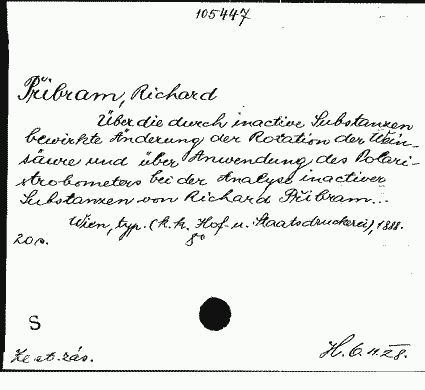 105447
Přibram, Richard
Über die durch inactive Substanzen
bewirkte Änderung der Rotation der Wein-
säure und über Anwendung des Polari-
strobometers bei der Analyse inactiver
Substanzen von Richard Přibram...
Wien, typ. (k. k. Hof- u. Staatsdruckerei), 1888.
20 p. 8°
S
Ze et. zás. H. 6. 4. 28.